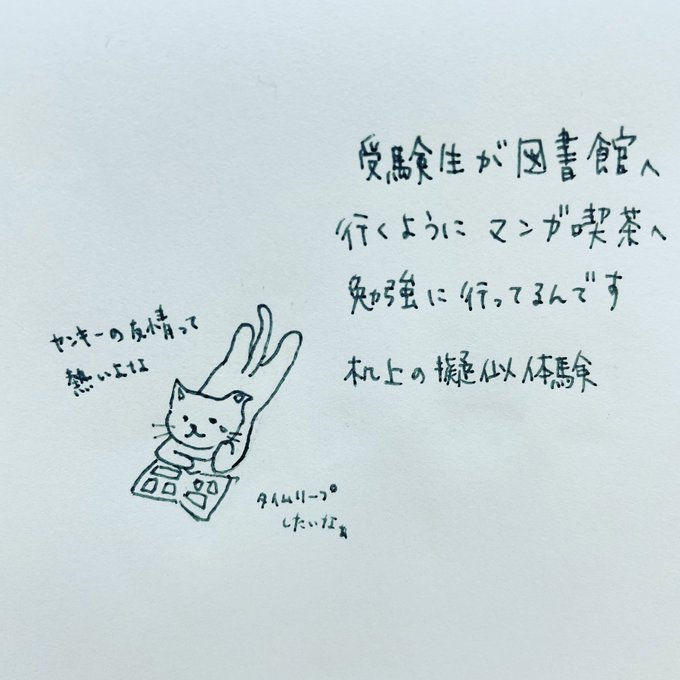 受験生が図書館へ
行くようにマンガ喫茶へ
勉強に行ってるんです
机上の擬似体験
ヤンキーの友情って
熱いよな
タイムリープ
したいなぁ